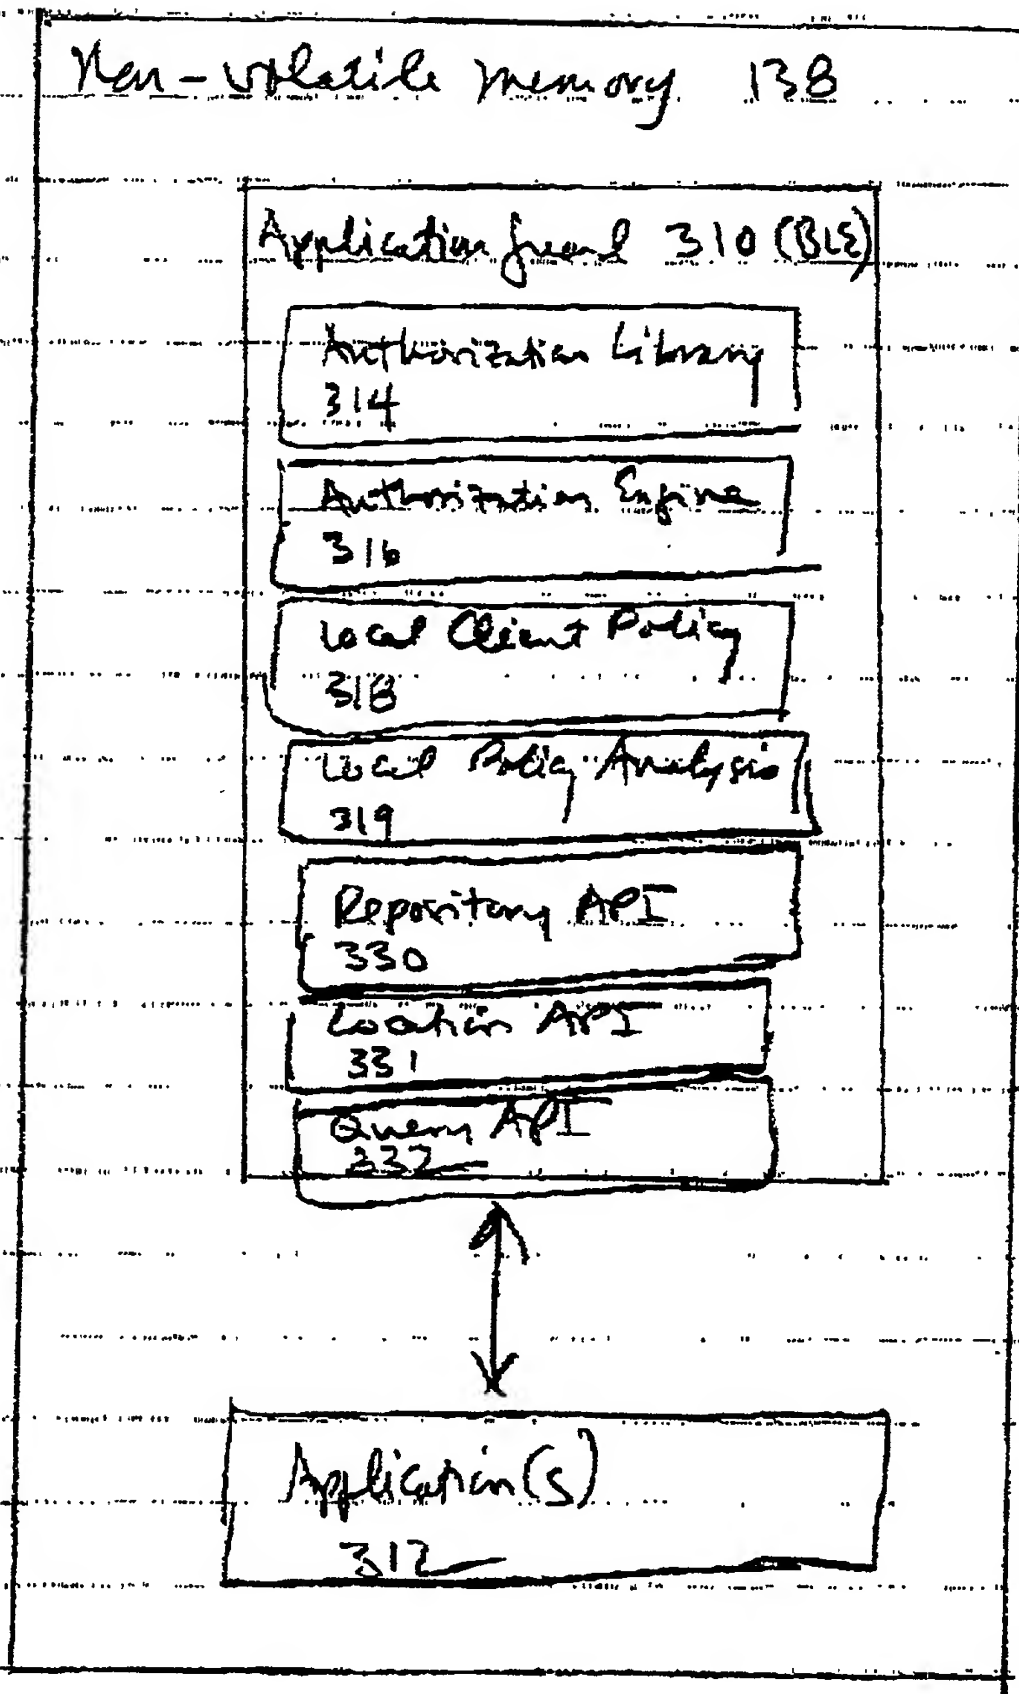 Non-volatile memory 138
Application guard 310 (BLE)
Authorization Library
314
Authorization Engine
316
Local Client Policy
318
Local Policy Analysis
319
Repository API
330
Location API
331
Query API
332
Application(s)
312